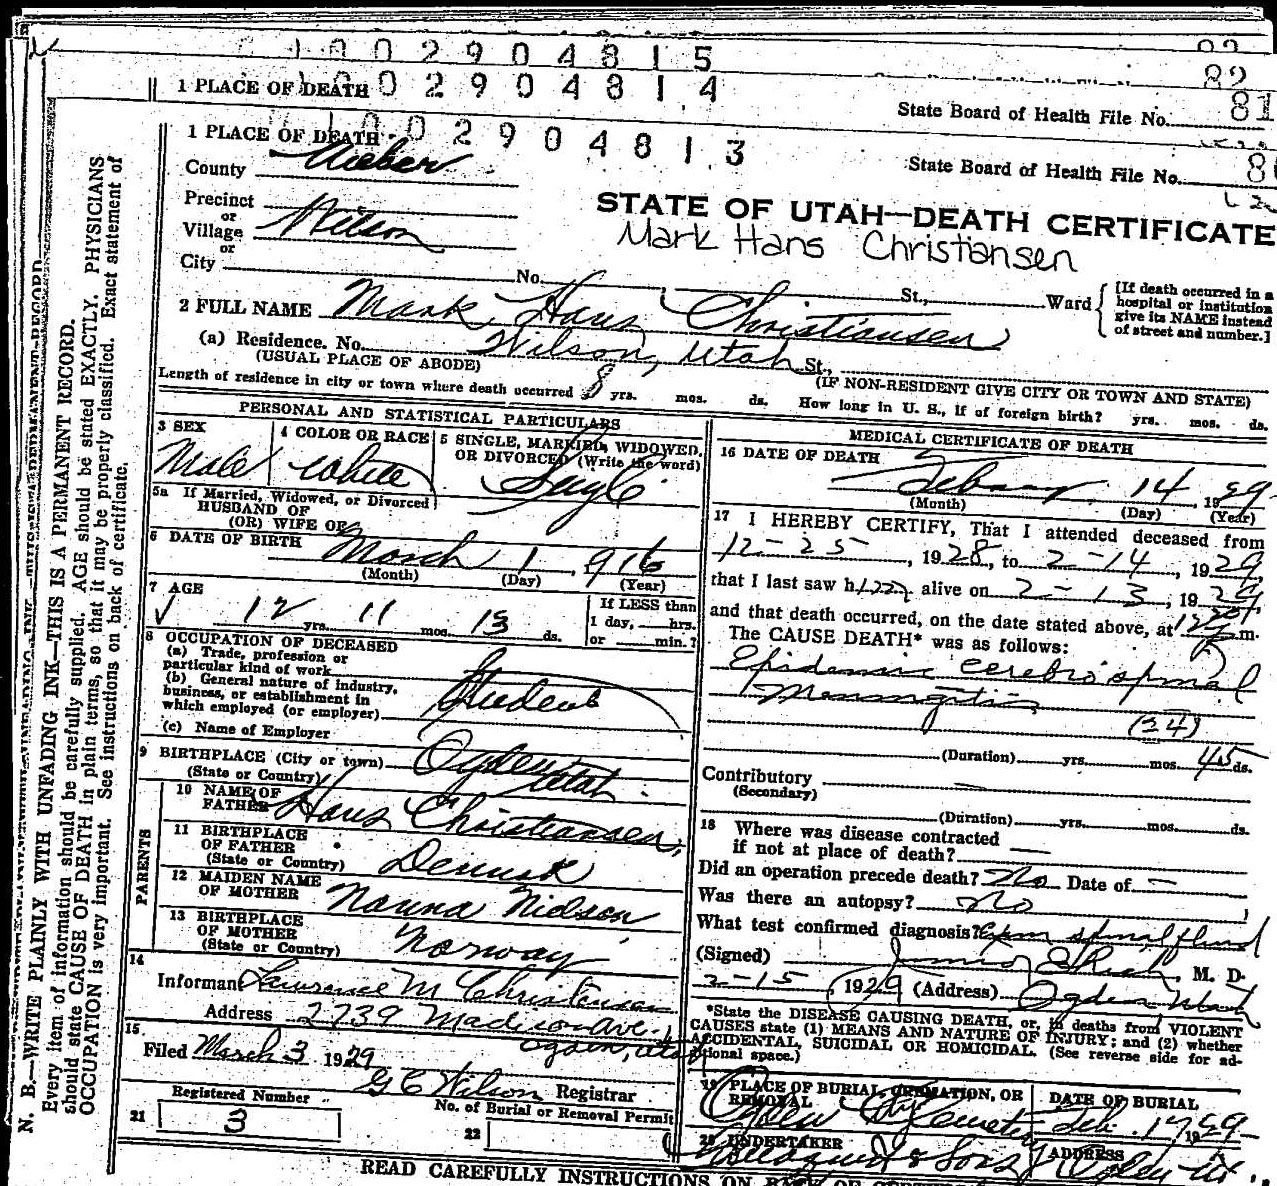 1 0 0 2 9 0 4 8 1 5
82
1 PLACE OF DEATH 1 0 0 2 9 0 4 8 1 4
State Board of Health File No. 81
1 PLACE OF DEATH 1 0 0 2 9 0 4 8 1 3
State Board of Health File No.
County Weber
STATE OF UTAH—DEATH CERTIFICATE
Mark Hans Christiansen
Precinct
or
Village Wilson
or
City No. St., Ward
[If death occurred in a
hospital or institution
give its NAME instead
of street and number.]
2 FULL NAME Mark Hans Christiansen
(a) Residence. No. Wilson, Utah St.,
(USUAL PLACE OF ABODE) (IF NON-RESIDENT GIVE CITY OR TOWN AND STATE)
Length of residence in city or town where death occurred 8 yrs. mos. ds. How long in U. S., if of foreign birth? yrs. mos. ds.
PERSONAL AND STATISTICAL PARTICULARS
3 SEX
Male
4 COLOR OR RACE
White
5 SINGLE, MARRIED, WIDOWED,
OR DIVORCED (Write the word)
Single
5a If Married, Widowed, or Divorced
HUSBAND OF
(OR) WIFE OF
6 DATE OF BIRTH March 1, 916
(Month) (Day) (Year)
7 AGE
12 yrs. 11 mos. 13 ds.
If LESS than
1 day, hrs.
or min.?
8 OCCUPATION OF DECEASED
(a) Trade, profession or
particular kind of work
(b) General nature of industry,
business, or establishment in
which employed (or employer) Student
(c) Name of Employer
9 BIRTHPLACE (City or town) Ogden
(State or Country) Utah
PARENTS
10 NAME OF
FATHER Hans Christiansen,
11 BIRTHPLACE
OF FATHER
(State or Country) Denmark
12 MAIDEN NAME
OF MOTHER Nielson
13 BIRTHPLACE
OF MOTHER
(State or Country) Norway
14
Informant Lawrence M Christensen
Address 2739 Madison Ave.
Ogden, Utah
15.
Filed March 3 1929
G E Wilson Registrar
Registered Number
21 3
No. of Burial or Removal Permit
22
MEDICAL CERTIFICATE OF DEATH
16 DATE OF DEATH
February 14, 1929
(Month) (Day) (Year)
17 I HEREBY CERTIFY, That I attended deceased from
12-25-, 1928, to 2-14, 1929,
that I last saw him alive on 2-13, 1929,
and that death occurred, on the date stated above, at m.
The CAUSE DEATH* was as follows:
Epidemic cerebro spinal
Meningitis
(24)
(Duration) yrs. mos. 45 ds.
Contributory
(Secondary)
(Duration) yrs. mos. ds.
18 Where was disease contracted
if not at place of death?
Did an operation precede death? No Date of —
Was there an autopsy? No
What test confirmed diagnosis? Exam spinal fluid
(Signed) Rich, M. D.
2-15, 1929 (Address) Ogden Utah
*State the DISEASE CAUSING DEATH, or, in deaths from VIOLENT
CAUSES state (1) MEANS AND NATURE OF INJURY; and (2) whether
ACCIDENTAL, SUICIDAL OR HOMICIDAL. (See reverse side for ad-
ditional space.)
19 PLACE OF BURIAL, CREMATION, OR
REMOVAL
Ogden City Cemetery
DATE OF BURIAL
Feb. 17 1929
20 UNDERTAKER
& Sons
ADDRESS
Ogden Ut.
READ CAREFULLY INSTRUCTIONS ON BACK OF
N. B.—WRITE PLAINLY WITH UNFADING INK—THIS IS A PERMANENT RECORD.
Every item of information should be carefully supplied. AGE should be stated EXACTLY. PHYSICIANS
should state CAUSE OF DEATH in plain terms, so that it may be properly classified. Exact statement of
OCCUPATION is very important. See instructions on back of certificate.